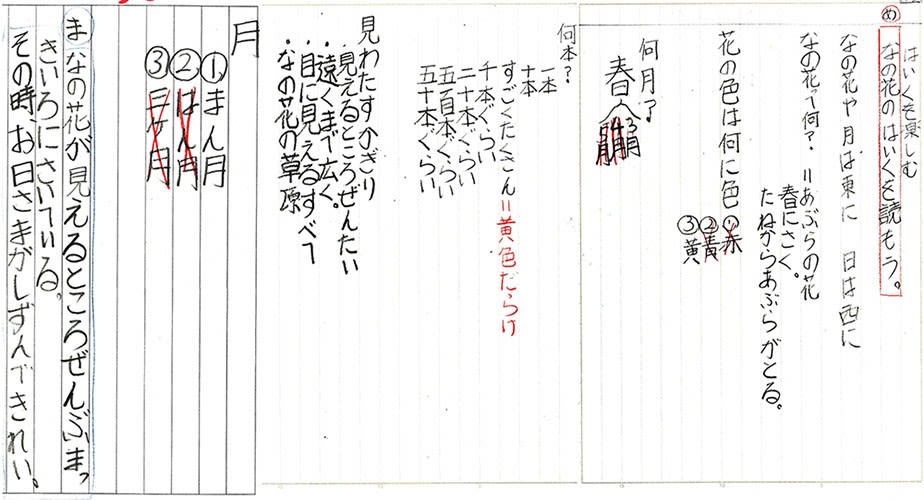 はいくを楽しむ
め なの花のはいくを読もう。
なの花や月は東に　日は西に
なの花って何？・＝あぶらの花
春にさく。
たねからあぶらがとる。
花の色は何に色
①赤
②青
③黄
何月？
春
3月
4月
5月
何本？
一本
十本
すごくたくさん＝黄色だらけ
千本ぐらい
二十本ぐらい
五百本ぐらい
五十本ぐらい
見わたすかぎり
・見えるところぜんたい
・遠くまで広く。
・目に見えるすべて
・なの花の草原
月
①まん月
②はん月
③三ヶ月
ま なの花が見えるところぜんぶまっ
きいろにさいている。
その時、お日さまがしずんできれい。